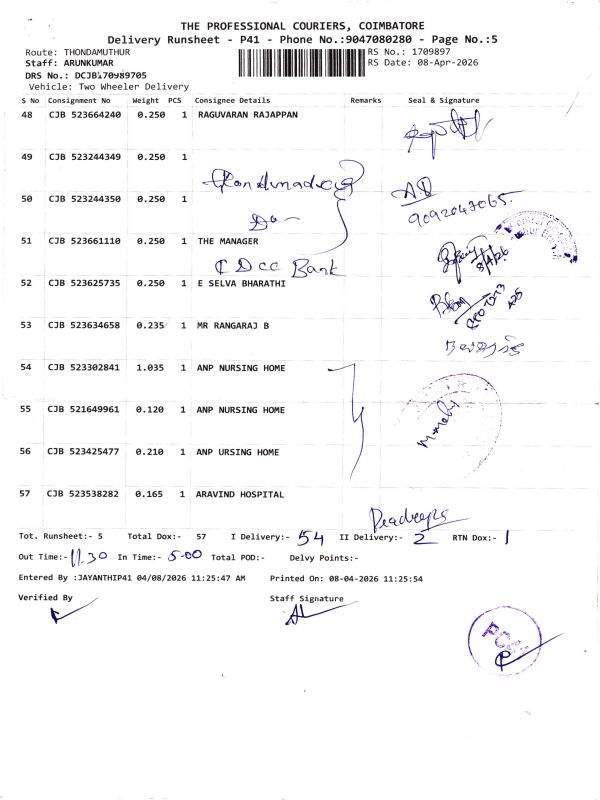 THE PROFESSIONAL COURIERS, COIMBATORE
Delivery Runsheet - P41 - Phone No.:9047080280 - Page No.:5
Route: THONDAMUTHUR RS No.: 1709897
Staff: ARUNKUMAR RS Date: 08-Apr-2026
DRS No.: DCJB170989705
Vehicle: Two Wheeler Delivery
S No Consignment No Weight PCS Consignee Details Remarks Seal & Signature
48 CJB 523664240 0.250 1 RAGUVARAN RAJAPPAN
49 CJB 523244349 0.250 1
50 CJB 523244350 0.250 1
9092047065.
51 CJB 523661110 0.250 1 THE MANAGER
CDCC Bank 8/4/26
52 CJB 523625735 0.250 1 E SELVA BHARATHI
53 CJB 523634658 0.235 1 MR RANGARAJ B
54 CJB 523302841 1.035 1 ANP NURSING HOME
55 CJB 521649961 0.120 1 ANP NURSING HOME
56 CJB 523425477 0.210 1 ANP URSING HOME
57 CJB 523538282 0.165 1 ARAVIND HOSPITAL
Tot. Runsheet:- 5 Total Dox:- 57 I Delivery:- 54 II Delivery:- 2 RTN Dox:- 1
Out Time:- 11.30 In Time:- 5.00 Total POD:- Delvy Points:-
Entered By :JAYANTHIP41 04/08/2026 11:25:47 AM Printed On: 08-04-2026 11:25:54
Verified By Staff Signature